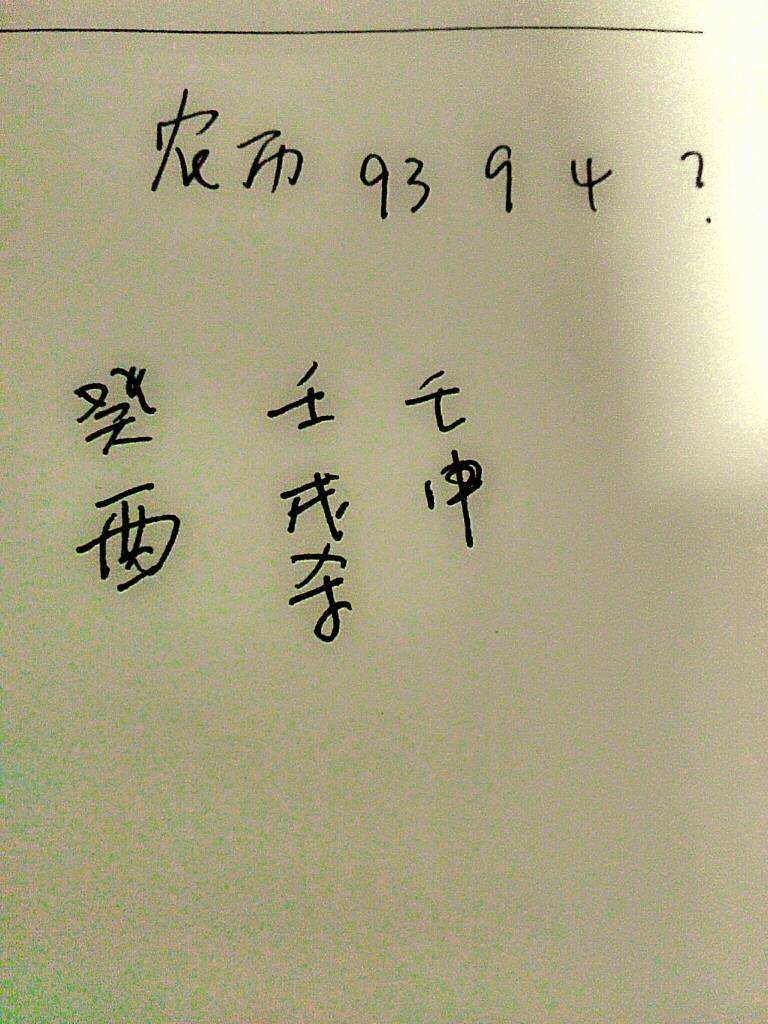 农历 93 9 4 ?
癸 壬 壬
酉 戌 申